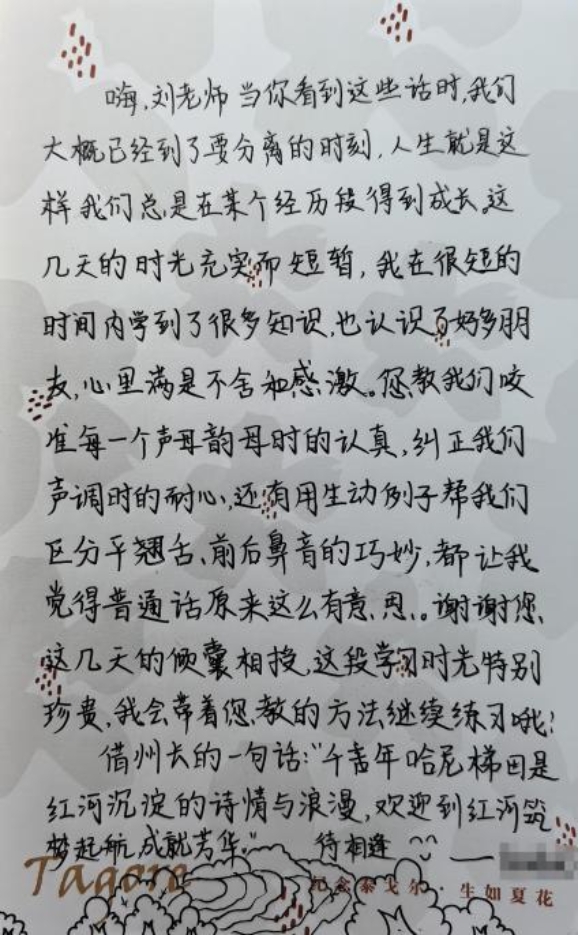 嗨,刘老师 当你看到这些话时,我们
大概已经到了要分离的时刻,人生就是这
样 我们总是在某个经历段得到成长。这
几天的时光充实而短暂,我在很短的
时间内学到了很多知识,也认识了好多朋
友,心里满是不舍和感激。您教我们咬
准每一个声母韵母时的认真,纠正我们
声调时的耐心,还有用生动例子帮我们
区分平翘舌、前后鼻音的巧妙,都让我
觉得普通话原来这么有意思。谢谢您
这几天的倾囊相授,这段学习时光特别
珍贵,我会带着您教的方法继续练习哦!
借州长的一句话:"千百年哈尼梯田是
红河沉淀的诗情与浪漫,欢迎到红河筑
梦起航,成就芳华。" 待相逢 —
Tagore
纪念泰戈尔·生如夏花